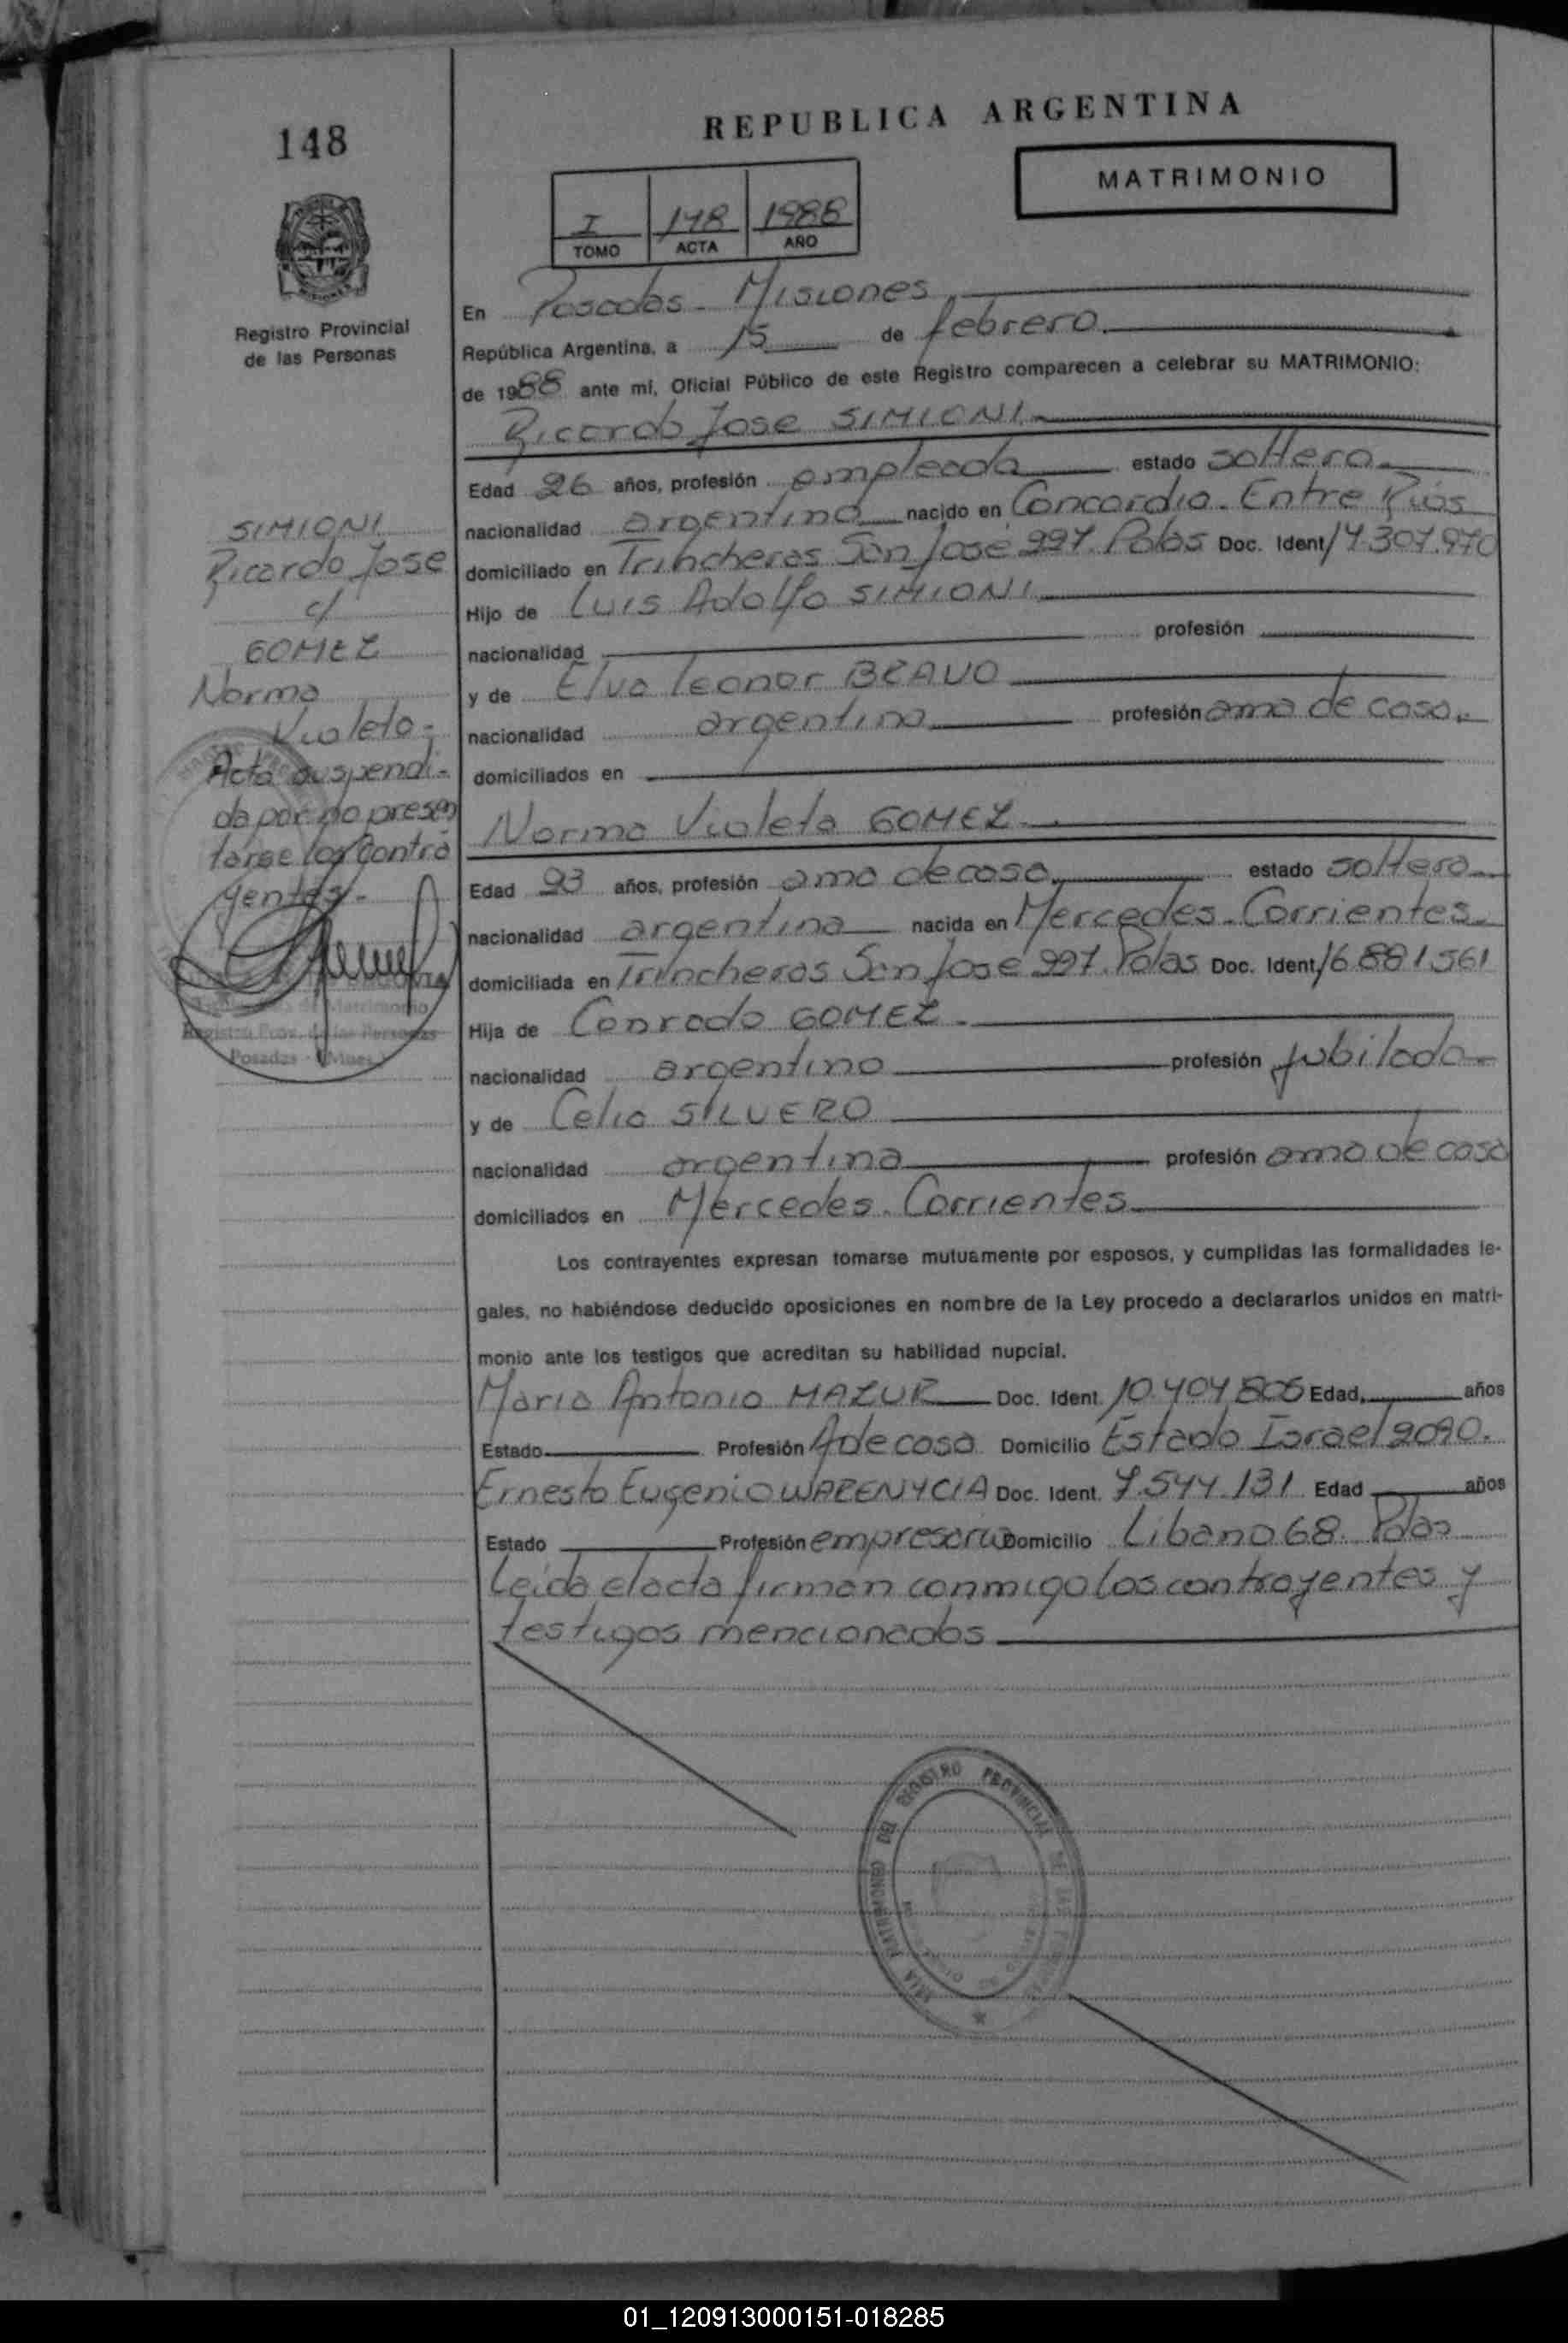 REPUBLICA ARGENTINA
148
MATRIMONIO
I 148 1988
TOMO ACTA AÑO
MISIONES
Registro Provincial
de las Personas
En Posadas - Misiones
República Argentina, a 15 de febrero.
de 1988 ante mí, Oficial Público de este Registro comparecen a celebrar su MATRIMONIO:
Ricardo Jose SIMIONI
Edad 26 años, profesión empleado estado soltero
nacionalidad argentino nacido en Concordia. Entre Rios
domiciliado en Trincheras San Jose 997. Pdas Doc. Ident 14.307.970
Hijo de Luis Adolfo SIMIONI
nacionalidad profesión
y de Elva Leonor BRAVO
nacionalidad argentina profesión ama de casa.
domiciliados en
Norma Violeta GOMEZ
Edad 23 años, profesión ama de casa estado soltera
nacionalidad argentina nacida en Mercedes. Corrientes.
domiciliada en Trincheras San Jose 997. Pdas Doc. Ident 16.881.561
Hija de Conrado GOMEZ.
nacionalidad argentino profesión jubilado
y de Celia SILVERO
nacionalidad argentina profesión ama de casa
domiciliados en Mercedes. Corrientes
Los contrayentes expresan tomarse mutuamente por esposos, y cumplidas las formalidades le-
gales, no habiéndose deducido oposiciones en nombre de la Ley procedo a declararlos unidos en matri-
monio ante los testigos que acreditan su habilidad nupcial.
Maria Antonio MAZUR Doc. Ident. 10.404.806 Edad, años
Estado Profesión A de casa Domicilio Estado Israel 2090.
Ernesto Eugenio WARENYCIA Doc. Ident. 7.544.131 Edad años
Estado Profesión empresario Domicilio Libano 68. Pdas
Leida el acta firman conmigo los contrayentes y
testigos mencionados
SIMIONI
Ricardo Jose
c/
GOMEZ
Norma
Violeta-
Acta suspendi-
da por no presen
tarse los contra
yentes.-
de Matrimonio
Registro Prov. de las Personas
Posadas - (Mnes.)
DEL REGISTRO PROVINCIAL DE LAS
01_120913000151-018285